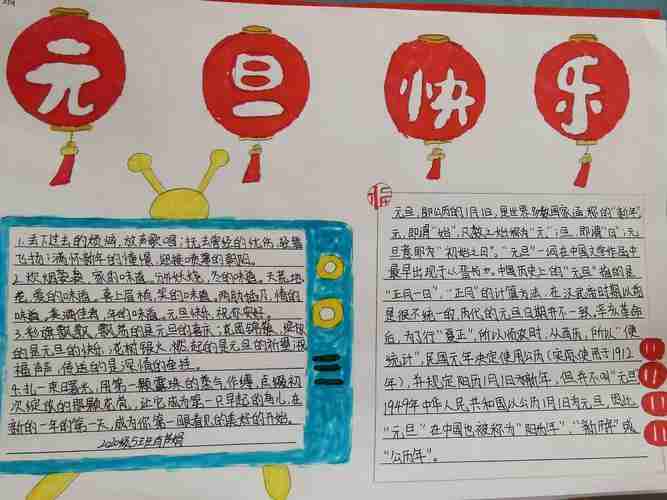 元旦快乐
1.丢下过去的烦恼,放声歌唱;抚去曾经的忧伤,轻舞
飞扬;满怀新年的憧憬,迎接喷薄的朝阳。
2.炊烟袅袅,家的味道,分外妖娆,冬的味道。天荒地
老,爱的味道。喜上眉梢,笑的味道。两肋插刀,情的
味道。美满佳肴,年的味道。元旦快乐,祝你安好。
3.彩旗飘飘,飘荡的是元旦的喜庆;
的是元旦的快乐;花树银火,燃起的是元旦的祈愿;祝
福声声,传递的是深情的牵挂。
4.扎一束日暮,用第一颗露珠的空气作缠,点缀初
次绽放的
新的一年的第一天,成为你第一眼看见的美好的开始。
福
元旦,即公历的1月1日,是世界多数国家通称的“新年”。
元,即谓“始”,凡数之始称为“元”;旦,即谓“日”;元
旦意即为“初始之日”。“元旦”一词在中国文学作品中
最早出现于《晋书》。中国历史上的“元旦”指的是
“正月一日”,“正月”的计算方法,在汉武帝时期以前
是很不统一的,历代的元旦日期并不一致。辛亥革命
后,为了“行夏正,所以顺农时,从西历,所以便
统计”,民国元年决定使用公历(实际使用于1912
年),并规定阳历1月1日为新年,但并不叫“元旦”
1949年中华人民共和国以公历1月1日为元旦,因此
“元旦”在中国也被称为“阳历年”、“新历年”或
“公历年”。